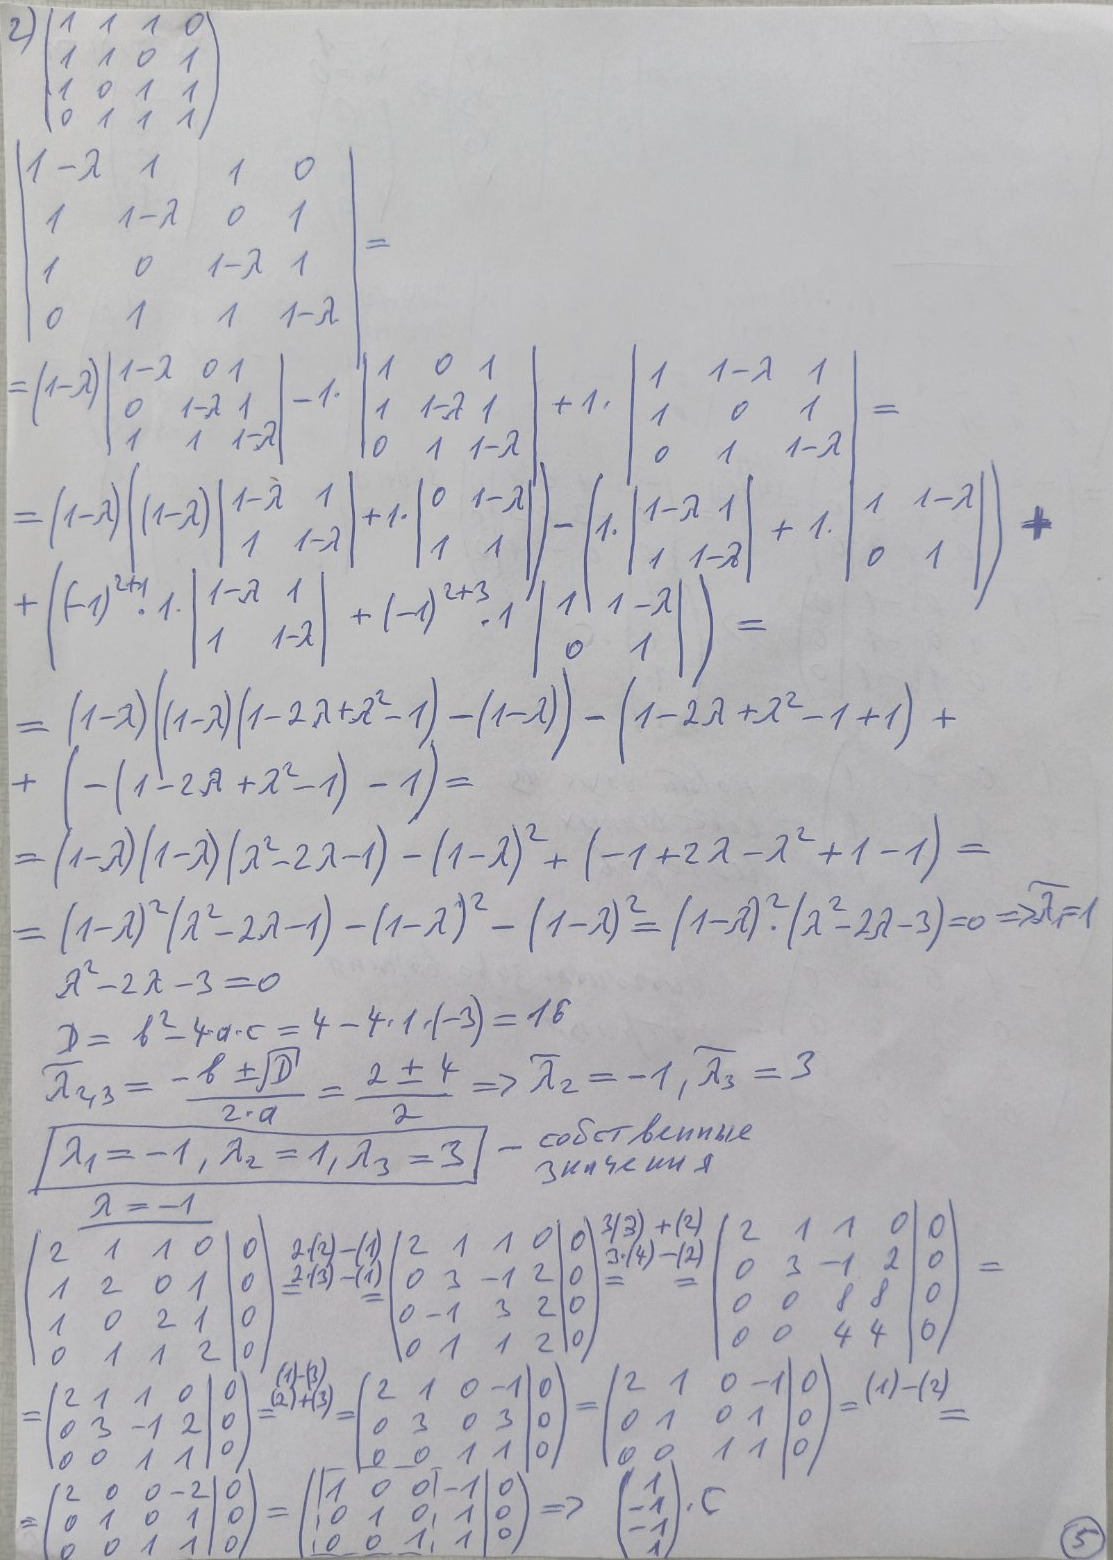 2) (1 1 1 0
1 1 0 1
1 0 1 1
0 1 1 1)
|1-λ 1 1 0
1 1-λ 0 1
1 0 1-λ 1
0 1 1 1-λ| =
= (1-λ) |1-λ 0 1; 0 1-λ 1; 1 1 1-λ| - 1· |1 0 1; 1 1-λ 1; 0 1 1-λ| + 1· |1 1-λ 1; 1 0 1; 0 1 1-λ| =
= (1-λ)((1-λ) |1-λ 1; 1 1-λ| + 1· |0 1-λ; 1 1|) - (1· |1-λ 1; 1 1-λ| + 1· |1 1-λ; 0 1|) +
+ ((-1)^2+1 · 1· |1-λ 1; 1 1-λ| + (-1)^2+3 · 1 |1 1-λ; 0 1|) =
= (1-λ)((1-λ)(1-2λ+λ²-1) - (1-λ)) - (1-2λ+λ²-1+1) +
+ (-(1-2λ+λ²-1) - 1) =
= (1-λ)(1-λ)(λ²-2λ-1) - (1-λ)² + (-1+2λ-λ²+1-1) =
= (1-λ)²(λ²-2λ-1) - (1-λ)² - (1-λ)² = (1-λ)²·(λ²-2λ-3)=0 => λ̅₁=1
λ²-2λ-3=0
D = b²-4·a·c = 4-4·1·(-3) = 16
λ̅₂,₃ = (-b ± √D)/(2·a) = (2 ± 4)/2 => λ̅₂ = -1, λ̅₃ = 3
λ₁ = -1, λ₂ = 1, λ₃ = 3 - собственные
значения
λ = -1
(2 1 1 0 | 0; 1 2 0 1 | 0; 1 0 2 1 | 0; 0 1 1 2 | 0) 2·(2)-(1) 2·(3)-(1) = = (2 1 1 0 | 0; 0 3 -1 2 | 0; 0 -1 3 2 | 0; 0 1 1 2 | 0) 3(3)+(2) 3·(4)-(2) = = (2 1 1 0 | 0; 0 3 -1 2 | 0; 0 0 8 8 | 0; 0 0 4 4 | 0) =
= (2 1 1 0 | 0; 0 3 -1 2 | 0; 0 0 1 1 | 0) = (1)-(3) (2)+(3) = (2 1 0 -1 | 0; 0 3 0 3 | 0; 0 0 1 1 | 0) = (2 1 0 -1 | 0; 0 1 0 1 | 0; 0 0 1 1 | 0) = (1)-(2) =
= (2 0 0 -2 | 0; 0 1 0 1 | 0; 0 0 1 1 | 0) = (1 0 0 -1 | 0; 0 1 0 1 | 0; 0 0 1 1 | 0) => (1; -1; -1; 1) · C
5